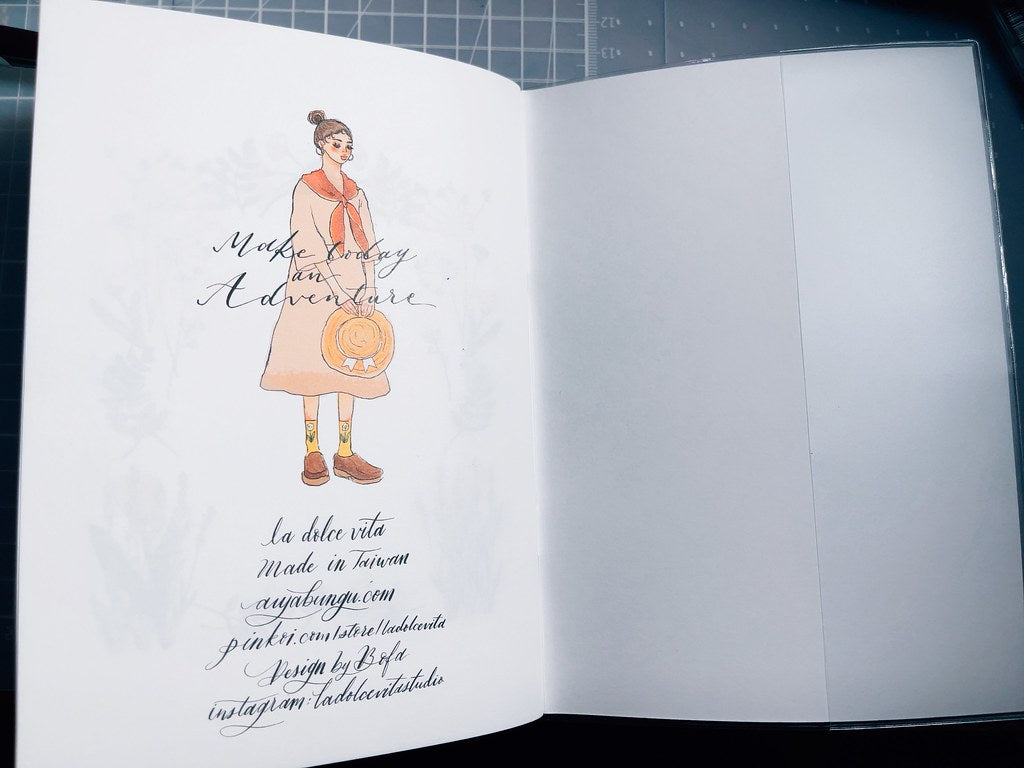 Make today
an
Adventure
la dolce vita
Made in Taiwan
auyabungu.com
pinkoi.com/store/ladolcevita
Design by Bofa
instagram: ladolcevitastudio
12
13